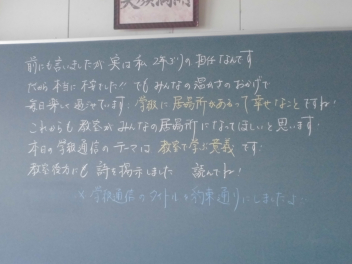 前にも言いましたが 実は私 2年ぶりの担任なんです
だから本当に不安でした!! でも みんなの温かさのおかげで
毎日楽しく過ごせています。学校に居場所があるって幸せなことですね!
これからも教室がみんなの居場所になってほしいと思います!
本日の学校通信のテーマは 教室で学ぶ意義 です
教室後方にも 詩を掲示しました 読んでね!
学校通信のタイトルを約束通りにしましたよ